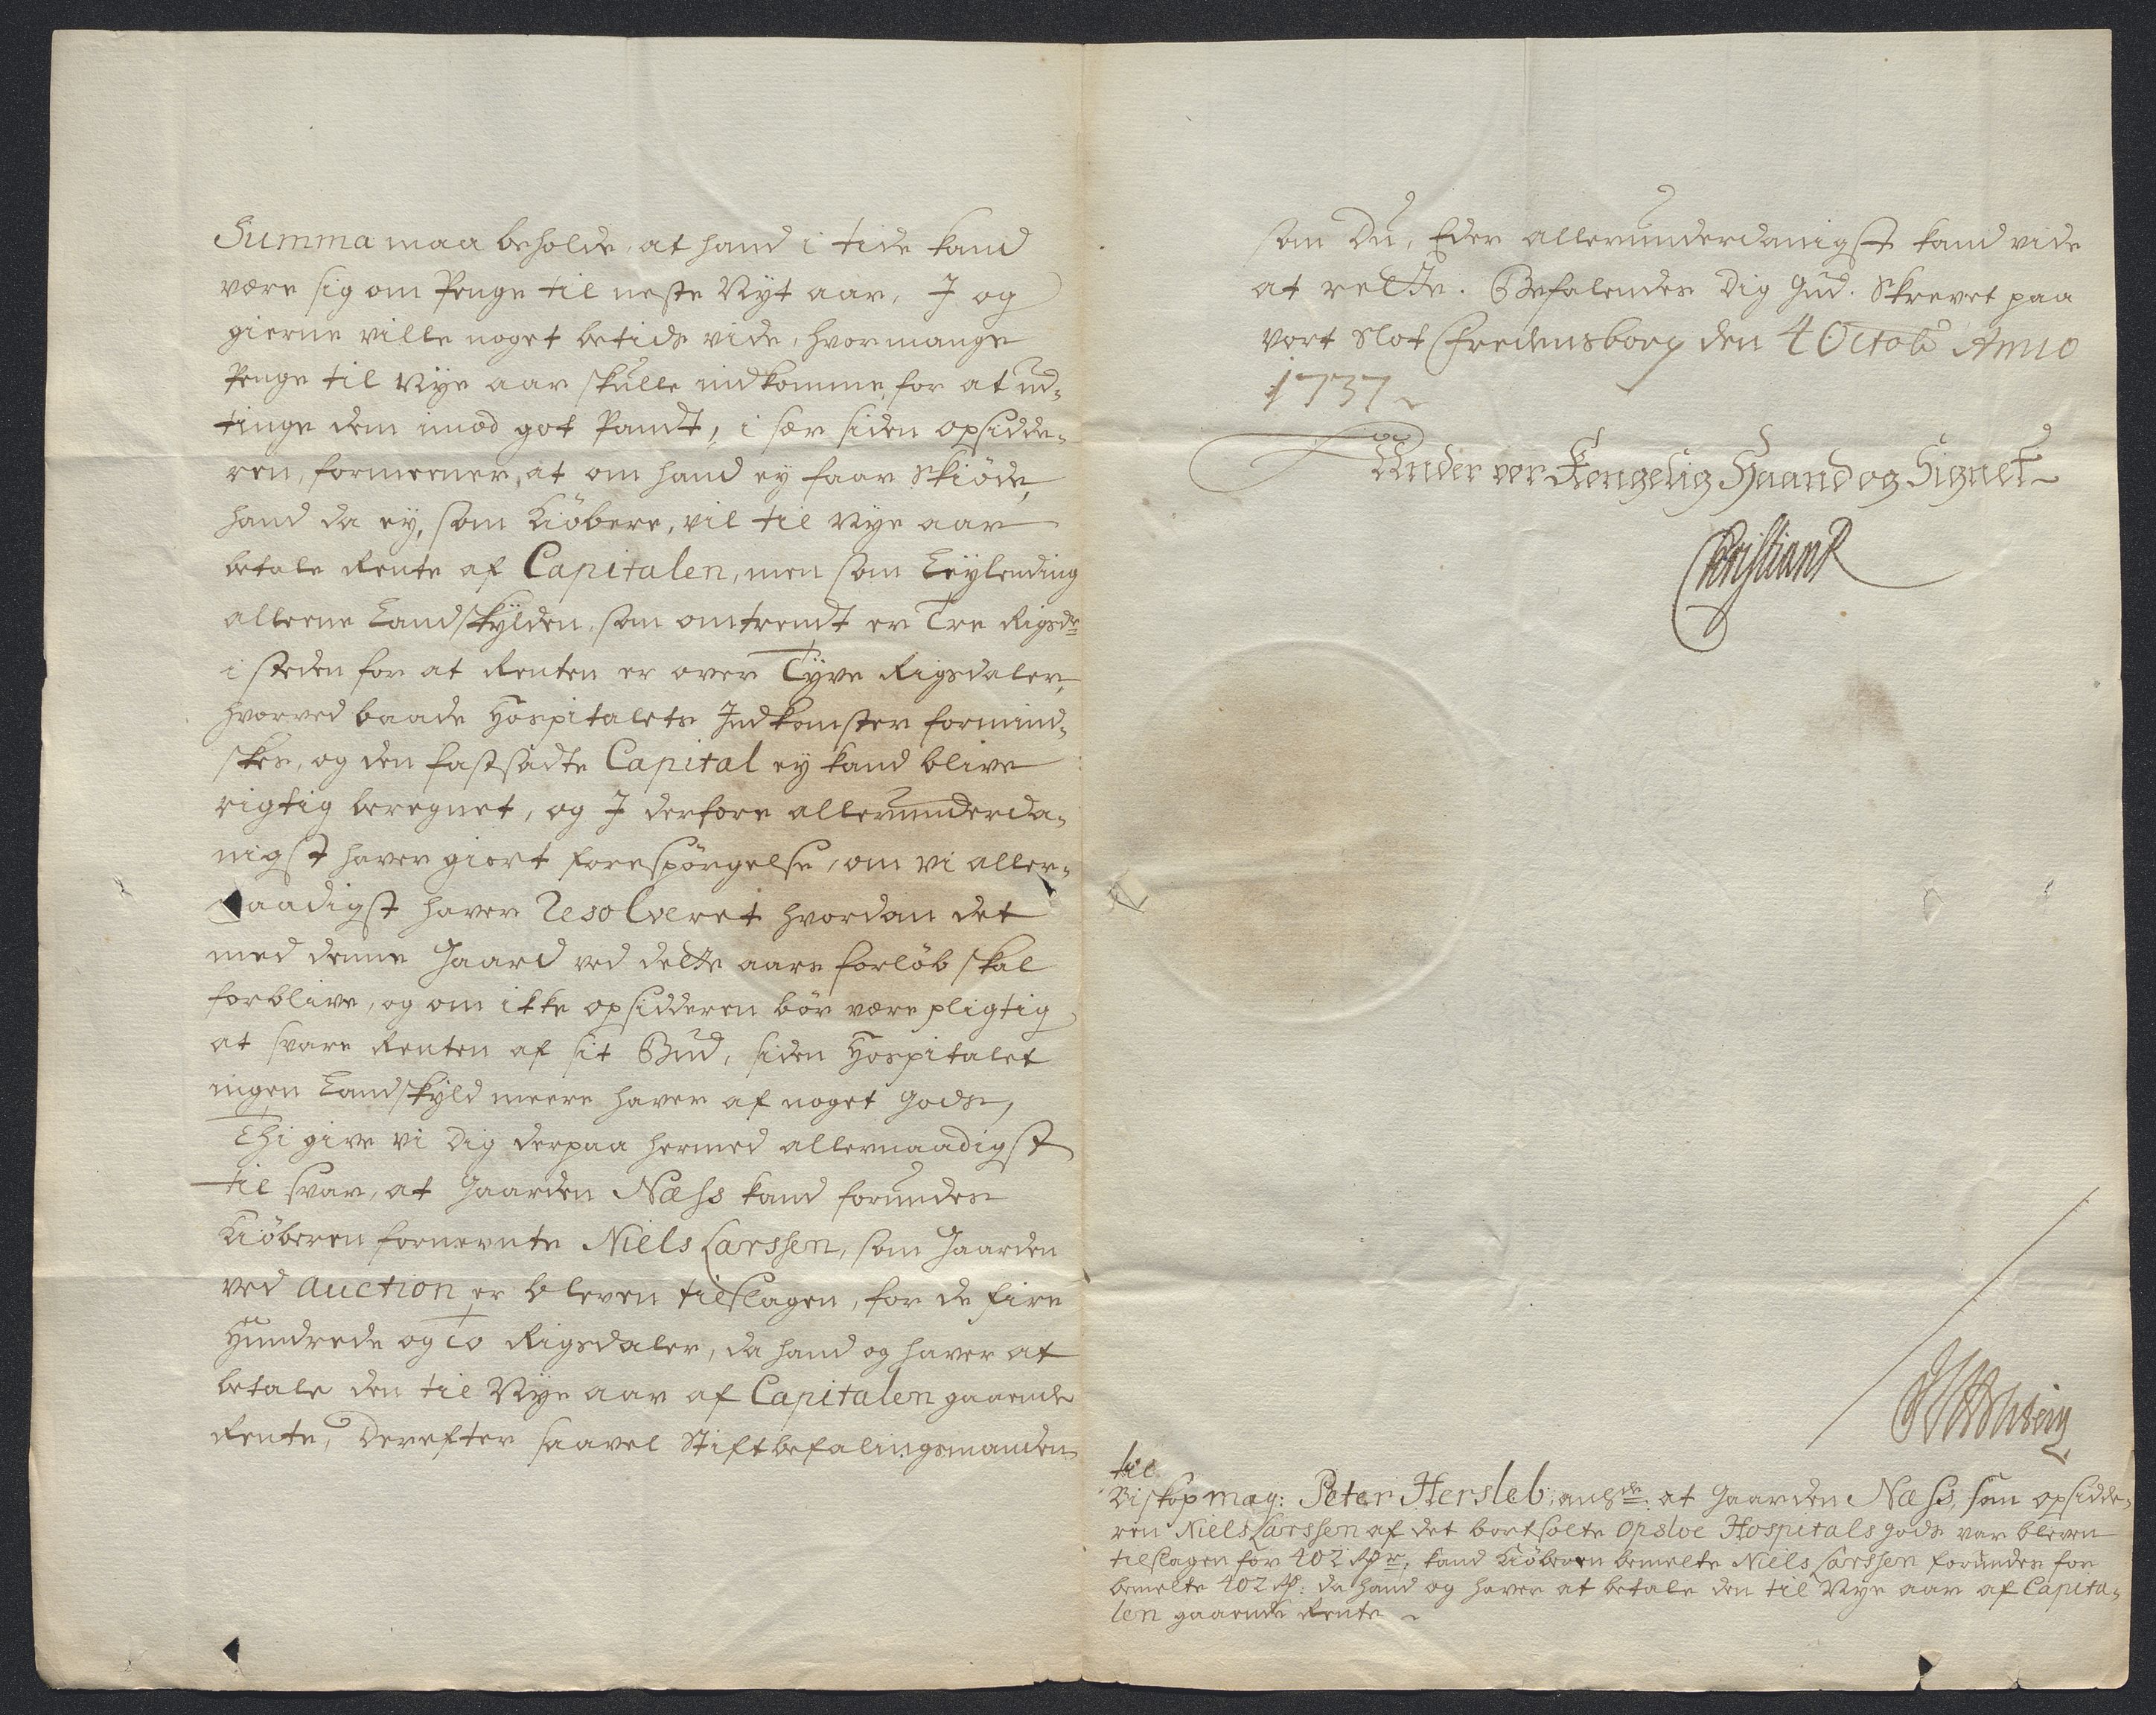 Summa maa beholde, at hand i tide kand
være sig om Penge til neste Nyt aar, I og
gierne ville noget betids vide, hvormange
Penge til Nye aar skulle indkomme, for at ud-
tinge dem imod got Pandt, i sær siden opsidde-
ren, formeener, at om hand ey faar Skiöde,
hand da ey, som Kiöbere, vil til Nye aar
betale Rente af Capitalen, men som Leylending
alleene Landskylden, som omtrendt er Tre Rigsdr
i steden for at Renten er over Tyve Rigsdaler,
hvorved baade Hospitalets Indkomster formind-
skes, og den fastsadte Capital ey kand blive
rigtig beregnet, og I derfore allerunderda-
nigst haver giort forespörgelse, om vi aller-
naadigst haver Resolveret hvordan det
med denne Gaard ved dette aars forlöb skal
forblive, og om ikke opsidderen bör være pligtig
at svare Renten af sit Bud, siden Hospitalet
ingen Landskyld meere haver af noget Gods,
Thi give vi Dig derpaa hermed allernaadigst
til svar, at Gaarden Næss kand forundes
Kiöberen fornevnte Niels Larssen, som Gaarden
ved Auction er bleven tilslagen, for de fire
Hundrede og To Rigsdaler, da hand og haver at
betale den til Nye aar af Capitalen gaaende
Rente, Derefter saavel Stiftbefalingsmanden
som Du, Eder allerunderdanigst kand vide
at rette. Befalendes Dig Gud. Skrevet paa
vort Slot Fredensborg den 4 Octobr Anno
1737
Under vor Kongelig Haand og Signet
Christian R
til
Biskop mag: Peter Hersleb, angde: at Gaarden Næss, som opsidde-
ren Niels Larssen af det bortsolte Opsloe Hospitals gods var bleven
tilslagen for 402 Rdr, kand Kiöberen bemelte Niels Larssen forundes for
bemelte 402 Rd: da hand og haver at betale den til Nye aar af Capita-
len gaaende Rente